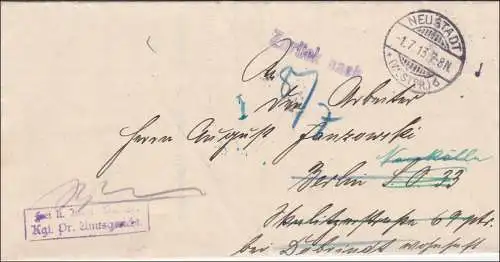 NEUSTADT
-1.7.13.7-8N.
* (WESTPR.) b
Zurück nach
An
Den Arbeiter
Herrn August Janzowski
Neukölln
Berlin S.O. 33
Skalitzerstraße 69 ptr.
bei Dobrindt wohnhaft
Kgl. Pr. Amtsgericht